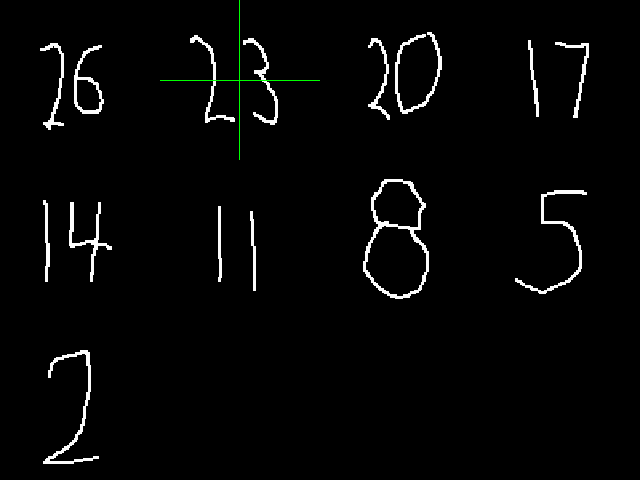 26 23 20 17
14 11 8 5
2